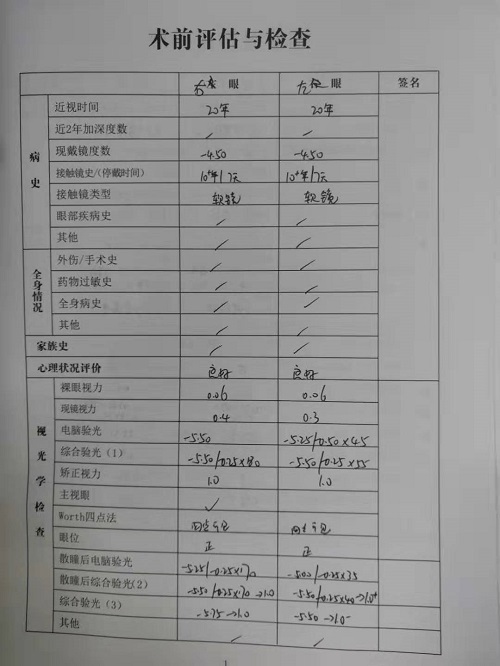 术前评估与检查
眼 眼 签名
病史
近视时间 20年 20年
近2年加深度数 / /
现戴镜度数 -4.50 -4.50
接触镜史/(停戴时间) 10+年/7天 10+年/7天
接触镜类型 软镜 软镜
眼部疾病史 / /
其他 / /
全身情况
外伤/手术史 / /
药物过敏史 / /
全身病史 / /
其他 / /
家族史 / /
心理状况评价 良好 良好
视光学检查
裸眼视力 0.06 0.06
现镜视力 0.4 0.3
电脑验光 -5.50 -5.25/-0.50×45
综合验光(1) -5.50/-0.25×180 -5.50/-0.25×55
矫正视力 1.0 1.0
主视眼 ✓
Worth四点法
眼位 正 正
散瞳后电脑验光 -5.25/-0.25×170 -5.00/-0.25×35
散瞳后综合验光(2) -5.50/-0.25×170→1.0 -5.50/-0.25×40→1.0+
综合验光(3) -5.75→1.0 -5.50→1.0-
其他 / /
1